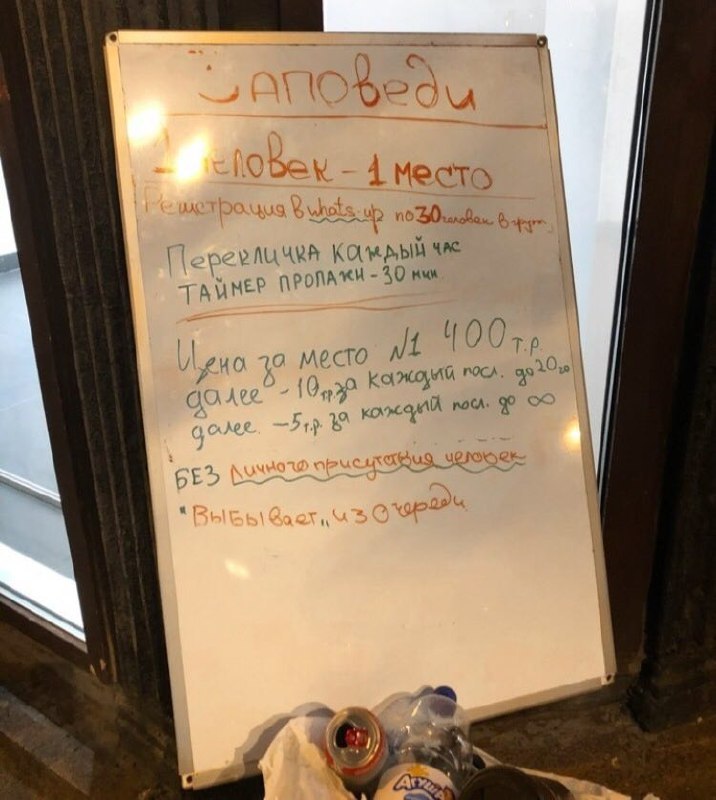 Заповеди
1 человек - 1 место
Регистрация в whats up по 30 человек в групп.
Перекличка каждый час
Таймер пропажи - 30 мин
Цена за место №1 400 т.р.
далее - 10 т.р. за каждый посл. до 20го
далее - 5 т.р. за каждый посл. до ∞
БЕЗ личного присутствия человек
"Выбывает" из очереди
Агуша